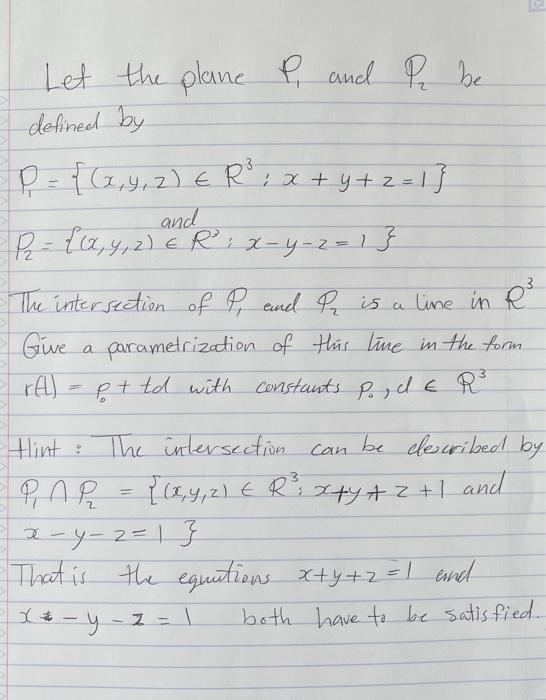 Let the plane P₁ and P₂ be
defined by
P₁ = {(x,y,z) ∈ R³ : x + y + z = 1}
and
P₂ = {(x,y,z) ∈ R³ : x - y - z = 1}
The intersection of P₁ and P₂ is a line in R³
Give a parametrization of this line in the form
r(t) = p₀ + td with constants p₀, d ∈ R³
Hint : The intersection can be described by
P₁ ∩ P₂ = {(x,y,z) ∈ R³ : x+y+z+1 and
x - y - z = 1 }
That is the equations x+y+z = 1 and
x - y - z = 1 both have to be satisfied.